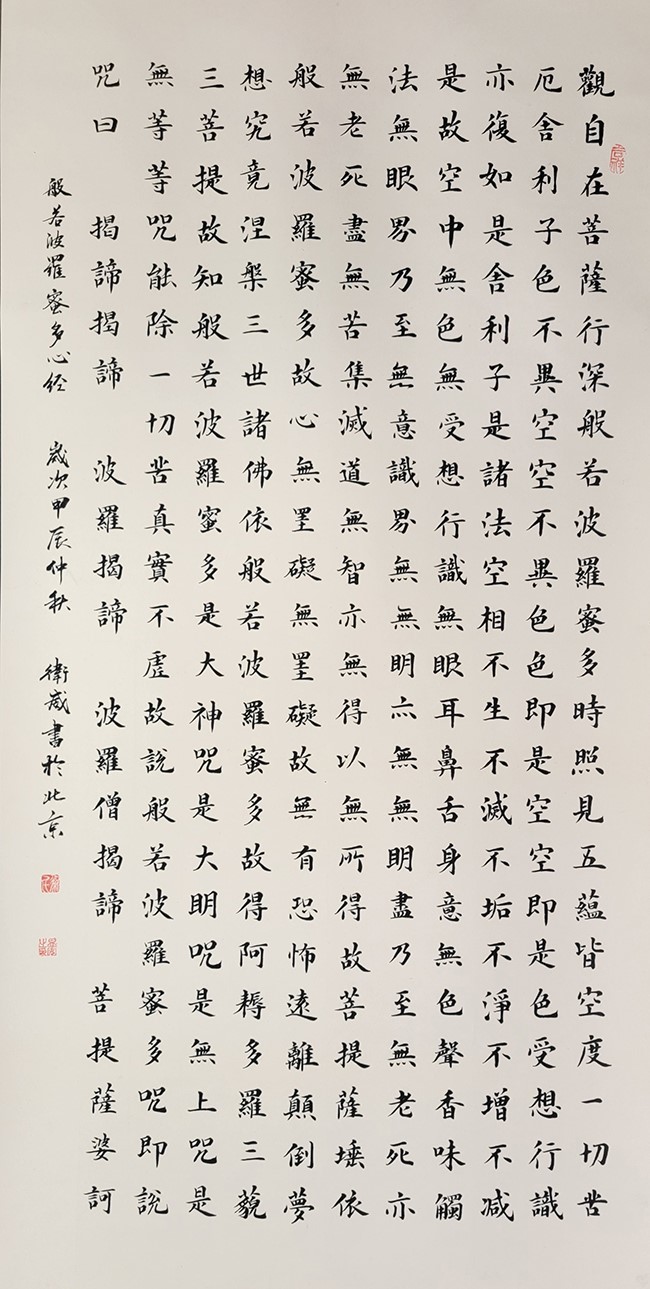 觀自在菩薩行深般若波羅蜜多時照見五蘊皆空度一切苦
厄舍利子色不異空空不異色色即是空空即是色受想行識
亦復如是舍利子是諸法空相不生不滅不垢不淨不增不减
是故空中無色無受想行識無眼耳鼻舌身意無色聲香味觸
法無眼界乃至無意識界無無明亦無無明盡乃至無老死亦
無老死盡無苦集滅道無智亦無得以無所得故菩提薩埵依
般若波羅蜜多故心無罣礙無罣礙故無有恐怖遠離顛倒夢
想究竟涅槃三世諸佛依般若波羅蜜多故得阿耨多羅三藐
三菩提故知般若波羅蜜多是大神咒是大明咒是無上咒是
無等等咒能除一切苦真實不虛故說般若波羅蜜多咒即說
咒曰 揭諦揭諦 波羅揭諦 波羅僧揭諦 菩提薩婆訶
般若波羅蜜多心经 歲次甲辰仲秋 衛書於北京